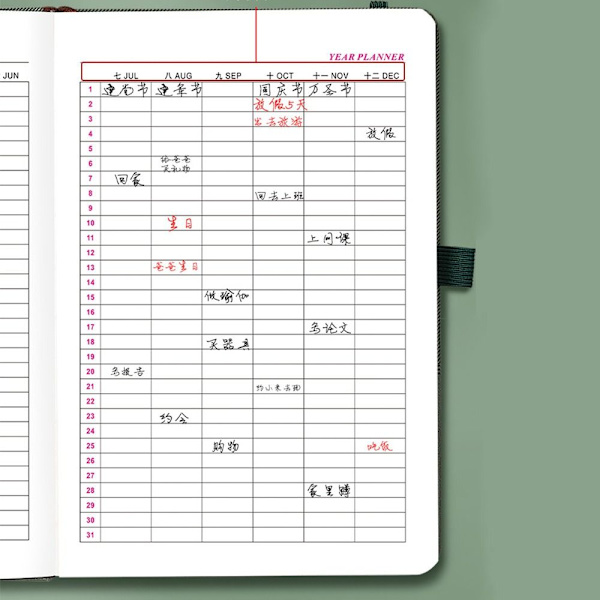 YEAR PLANNER
JUN 七 JUL 八 AUG 九 SEP 十 OCT 十一 NOV 十二 DEC
1 建党节 建军节 国庆节 万圣节
2 放假5天
3 出去旅游
4 放假
5
6 给爸爸
买礼物
7 回家
8 回去上班
9
10 生日
11 上网课
12
13 爸爸生日
14
15 做瑜伽
16
17 写论文
18 买器具
19
20 写报告
21
22
23 约会
24
25 购物 吃饭
26
27
28 家里蹲
29
30
31